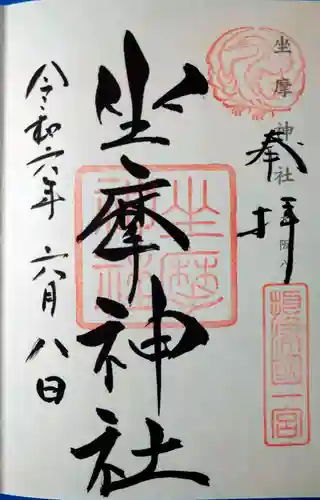 奉拝
坐摩神社
坐摩神社
令和六年 六月八日
坐摩神社
摂津国一宮